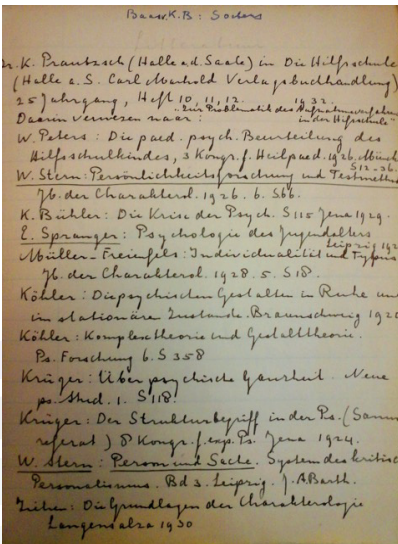 Baas. K.B: Soders
Dr. K. Prantzsch (Halle a.d. Saale) in Die Hilfsschule
(Halle a. S. Carl Marhold Verlagsbuchhandlung)
25 Jahrgang, Heft 10, 11, 12. 1932.
"Zur Problematik des Aufnahmeverfahrens
Daarin verwezen naar: in der Hilfsschule"
W. Peters: Die paed. psych. Beurteilung des
Hilfsschulkindes, 3 Kongr. f. Heilpaed. 1926. Münch
S 12-36.
W. Stern: Persönlichkeitsforschung und Testmethod
Jb. der Charakterol. 1926. 6. S 66.
K. Bühler: Die Krise der Psych. S 115 Jena 1929.
E. Spranger: Psychologie des Jugendalters
Leipzig 192
Müller-Freienfels: Individualität und Typus
Jb. der Charakterol. 1928. 5. S 18.
Köhler: Die psychischen Gestalten in Ruhe und
im stationäre Zustande. Braunschweig 1920
Köhler: Komplextheorie und Gestalttheorie.
Ps. Forschung 6. S 358
Krüger: Über psychische Ganzheit. Neue
ps. Stud. 1. S 118.
Krüger: Der Strukturbegriff in der Ps. (Samm
referat) 8 Kongr. f. exp. Ps. Jena 1924.
W. Stern: Person und Sache. System des kritisch
Personalismus. Bd 3. Leipzig. J. A. Barth.
Ziehen: Die Grundlagen der Charakterologie
Langensalza 1930